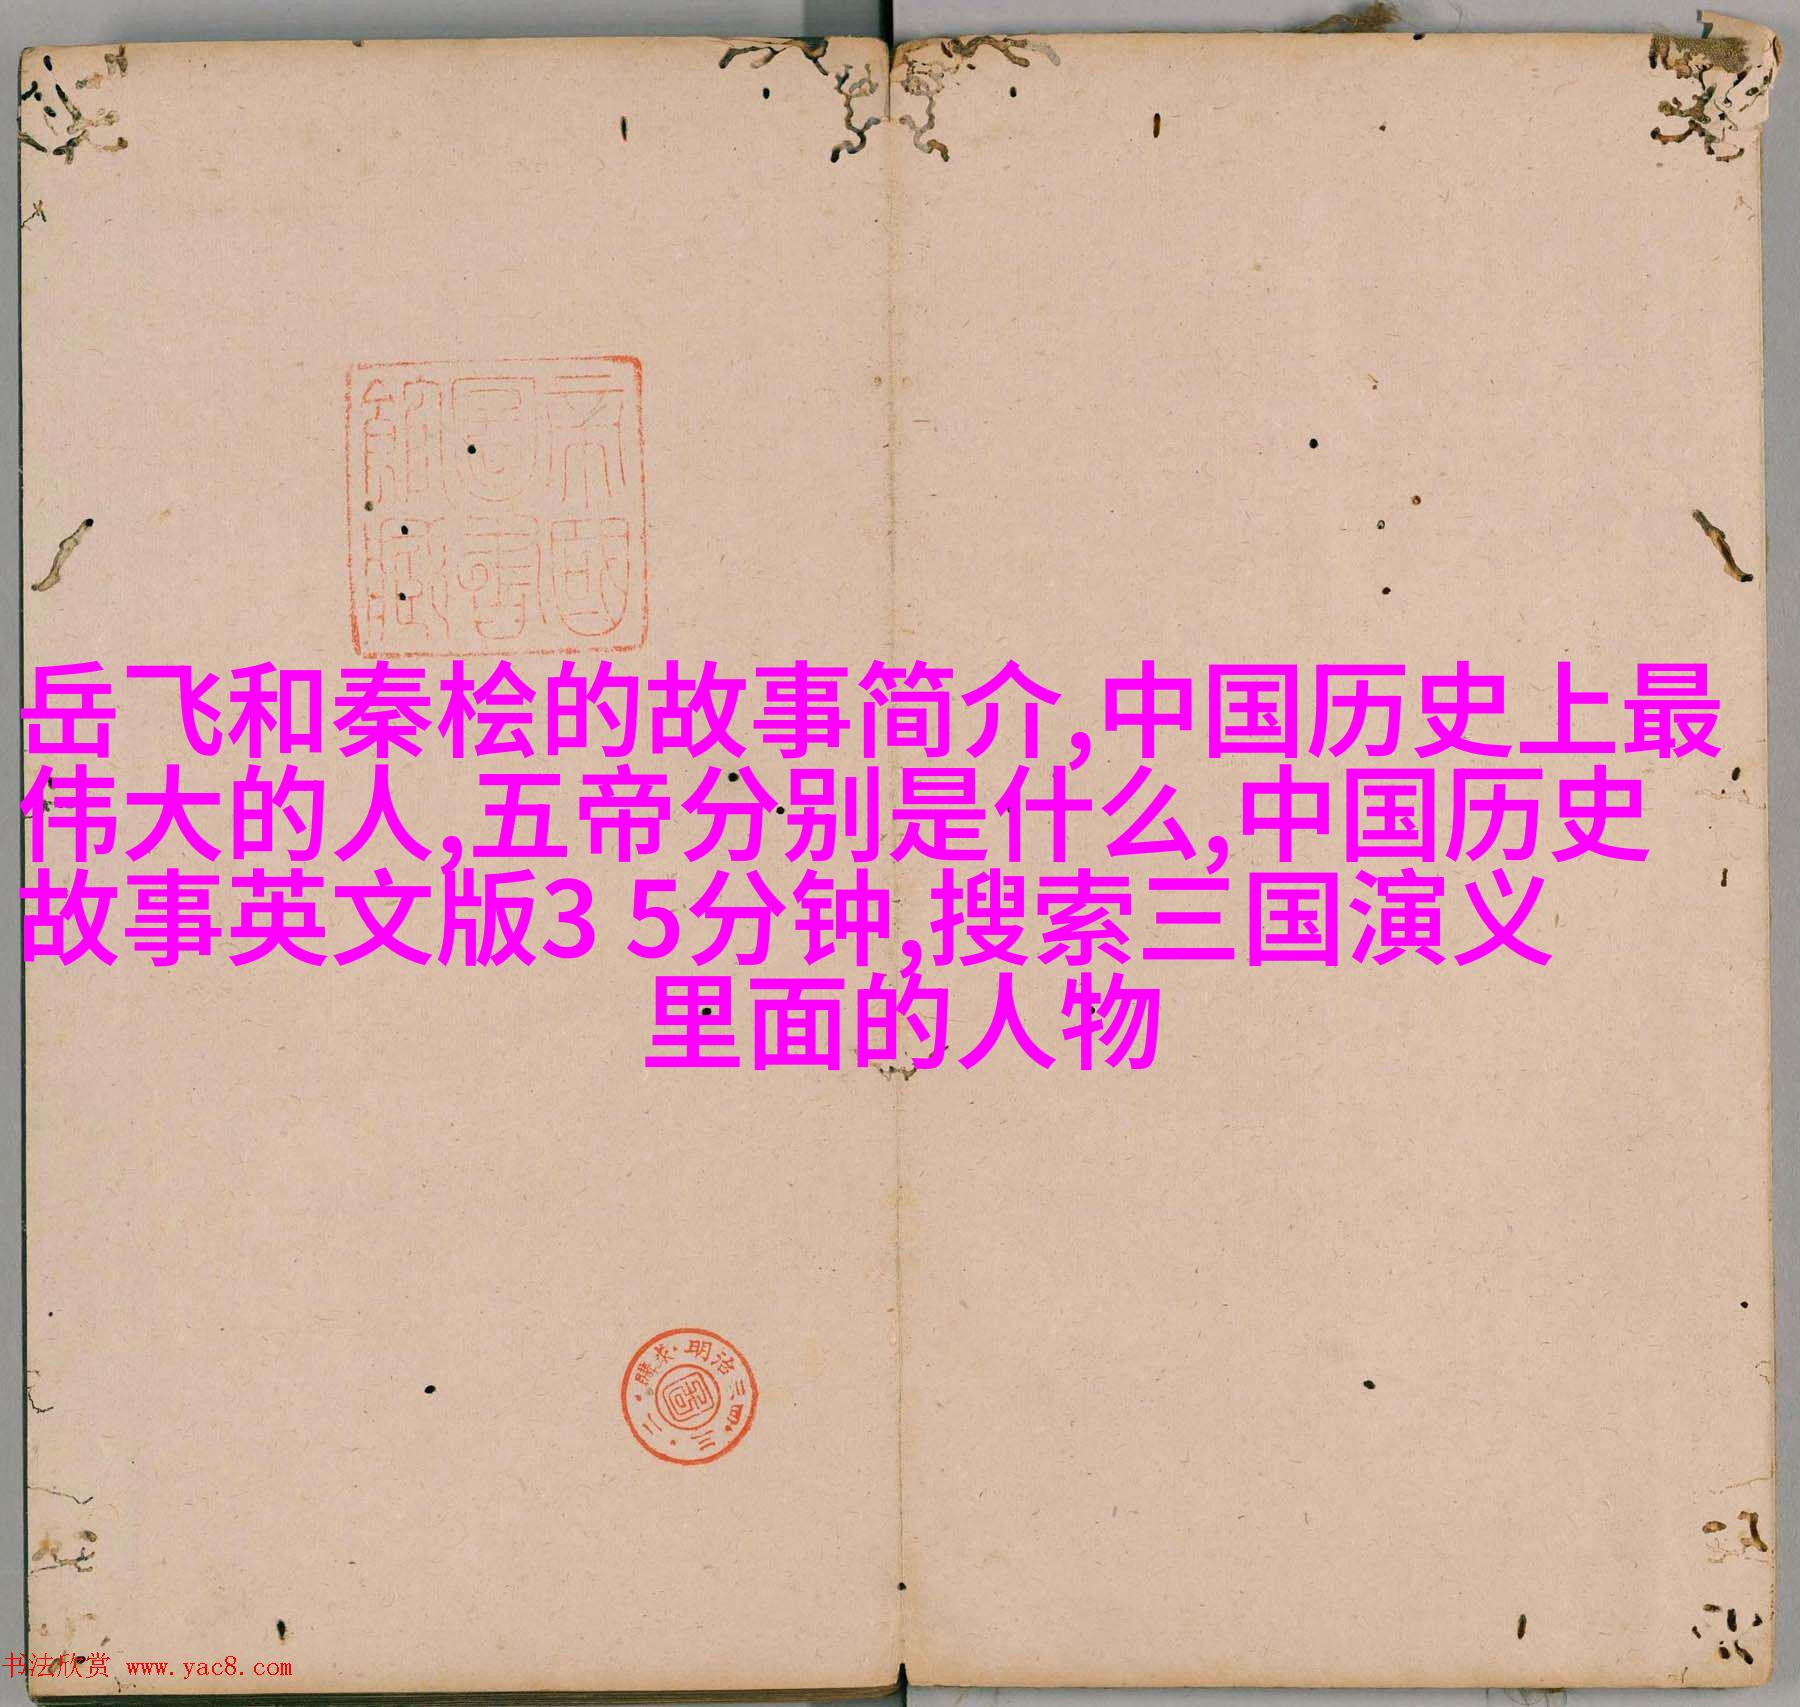 帝国
圖書
館藏
岳飞和秦桧的故事简介,中国历史上最
伟大的人,五帝分别是什么,中国历史
故事英文版3 5分钟,搜索三国演义
里面的人物
明治三四·三·二·購求·
书法欣赏 www.yac8.com